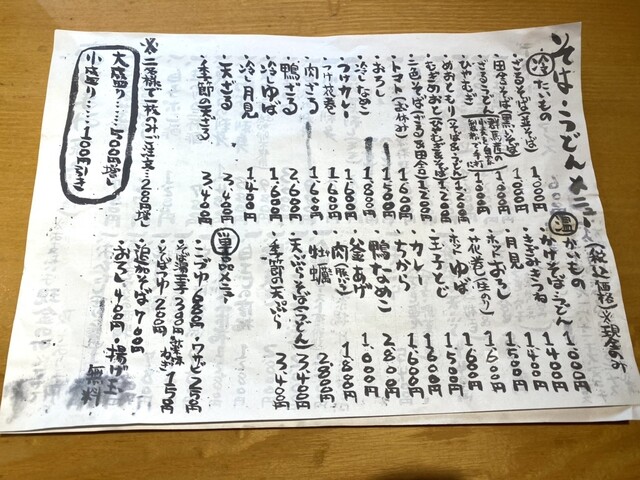 そば・うどんメニュー (税込価格) ※現金のみ
冷たいもの
・ざるそば(並そば) 1000円
・田舎そば(黒いそば) 1000円
・ざるうどん 1000円
・ひやむぎ
・めおともり(そば&うどん) 1200円
・むぎめおと(ひやむぎ&そば) 1200円
・二色そば(ざる&田舎) 1200円
・トマト(お休み) 1600円
・おろし 1500円
・冷しなめこ 1800円
・つけカレー 1600円
・つけ花巻 1600円
・肉ざる 1600円
・鴨ざる 2600円
・冷しゆば 1600円
・冷し月見 1400円
・天ざる 3400円
・季節の天ざる 3400円
※二名様で一枚のみご注文…200円増し
大盛り……500円増し
小盛り……100円引き
温かいもの
・かけそば・うどん 1000円
・きざみきつね 1400円
・月見 1400円
・ホットおろし 1500円
・花巻(生のり) 1600円
・ホットゆば 1600円
・玉子とじ 1500円
・カレー 1600円
・ちから 1600円
・鴨なめこ 2800円
・釜あげ 1000円
・肉 1800円
・牡蠣 2800円
・天ぷらそば(うどん) 3400円
・季節の天ぷら 3400円
単品メニュー
・こづゆ 600円・ワサビ 250円
・温 300円・薬味ねぎ 150円
・そばつゆ 200円
・追加そば 700円
・おろし 400円・揚げ玉 無料